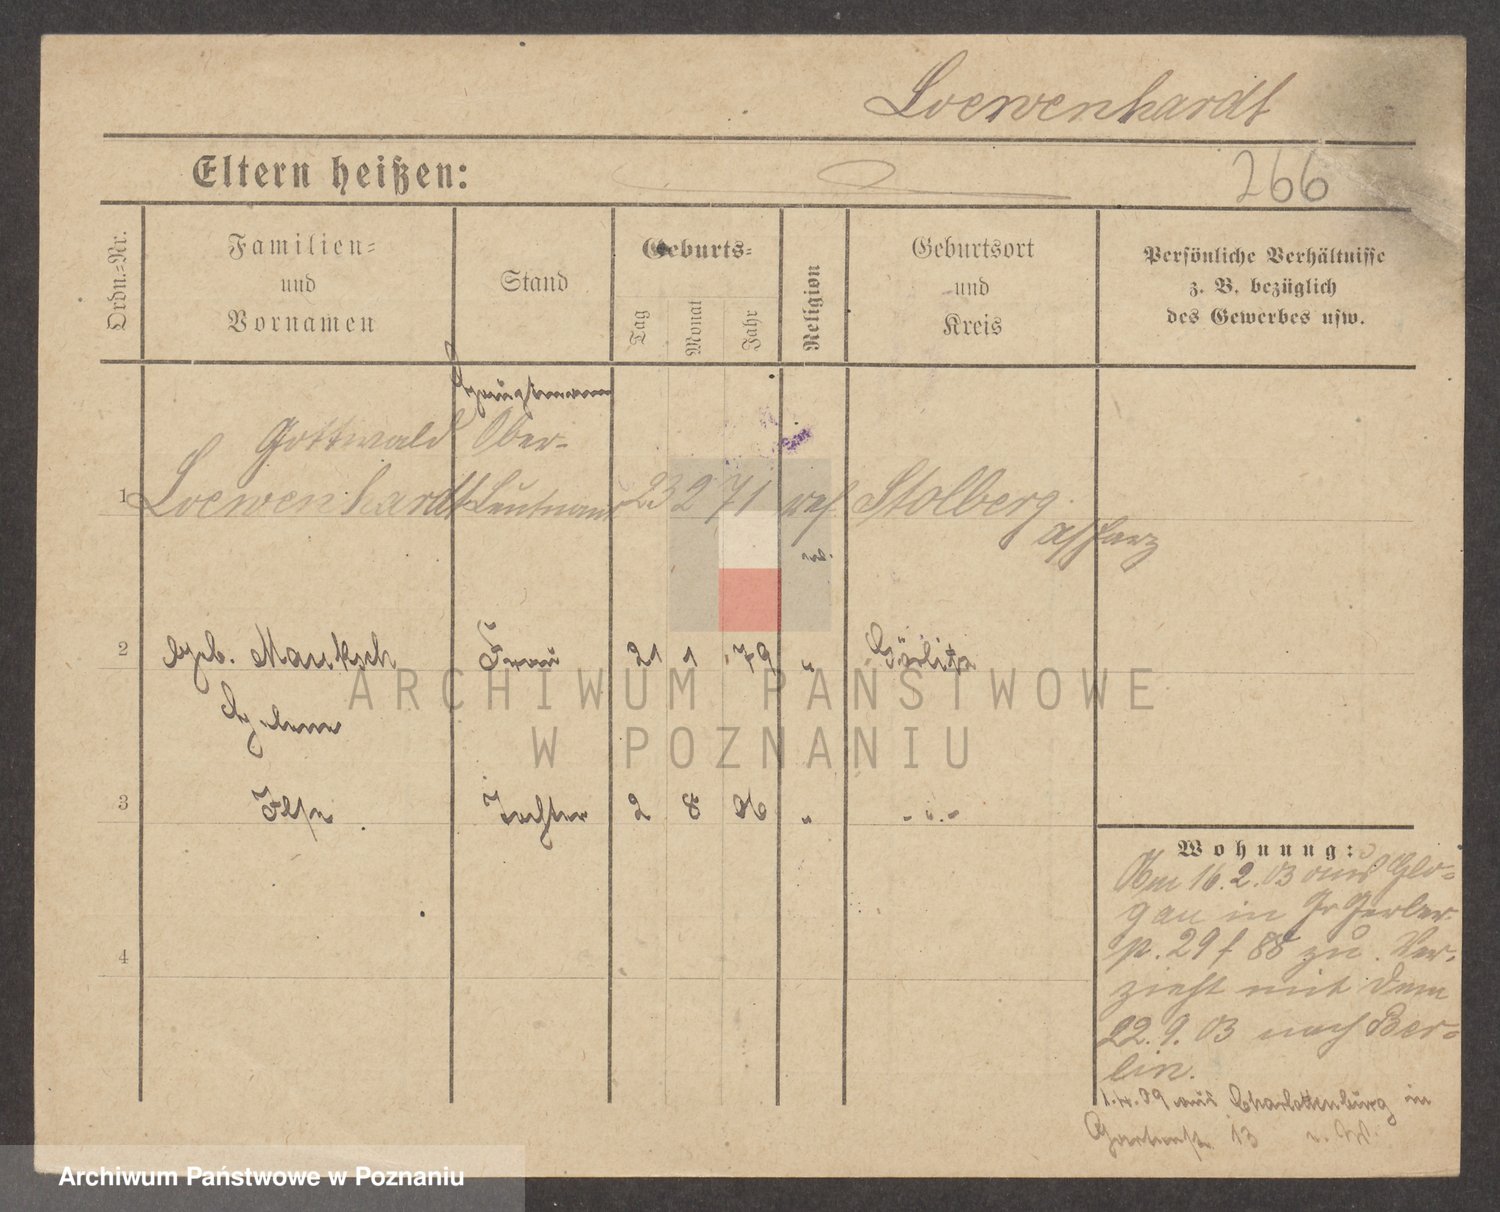 Loewenhardt
Eltern heißen:
266
Ordn.=Nr.
Familien=
und
Vornamen
Stand
Geburts=
Tag
Monat
Jahr
Religion
Geburtsort
und
Kreis
Persönliche Verhältnisse
z. B. bezüglich
des Gewerbes usw.
Hauptmann
Gottwald Ober-
1 Loewenhardt Leutnant 23 2 71 ref Stolberg
a/Harz
2 geb. Mauksch Frau 21 1 79 " Görlitz
3 Ilse Tochter 2 8 06 " - " -
4
Wohnung:
Am 16.2.03 aus Glo-
gau in Gr Gerber-
29 88 zu. Ver-
zieht mit dem
22.9.03 nach Ber-
lin.
09 aus Charlottenburg in
Gartenstr. 13
ARCHIWUM PAŃSTWOWE
W POZNANIU
Archiwum Państwowe w Poznaniu